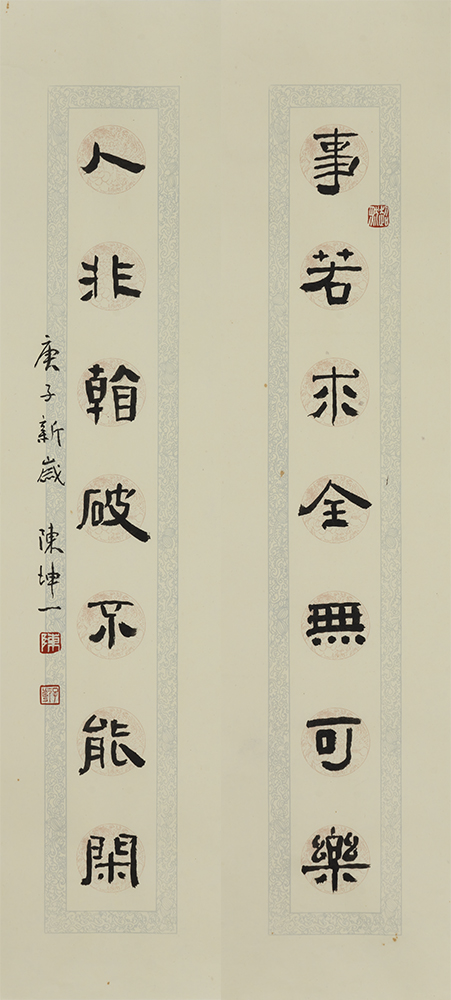 事若求全無可樂
人非看破不能閑
庚子新歲 陳坤一
陳